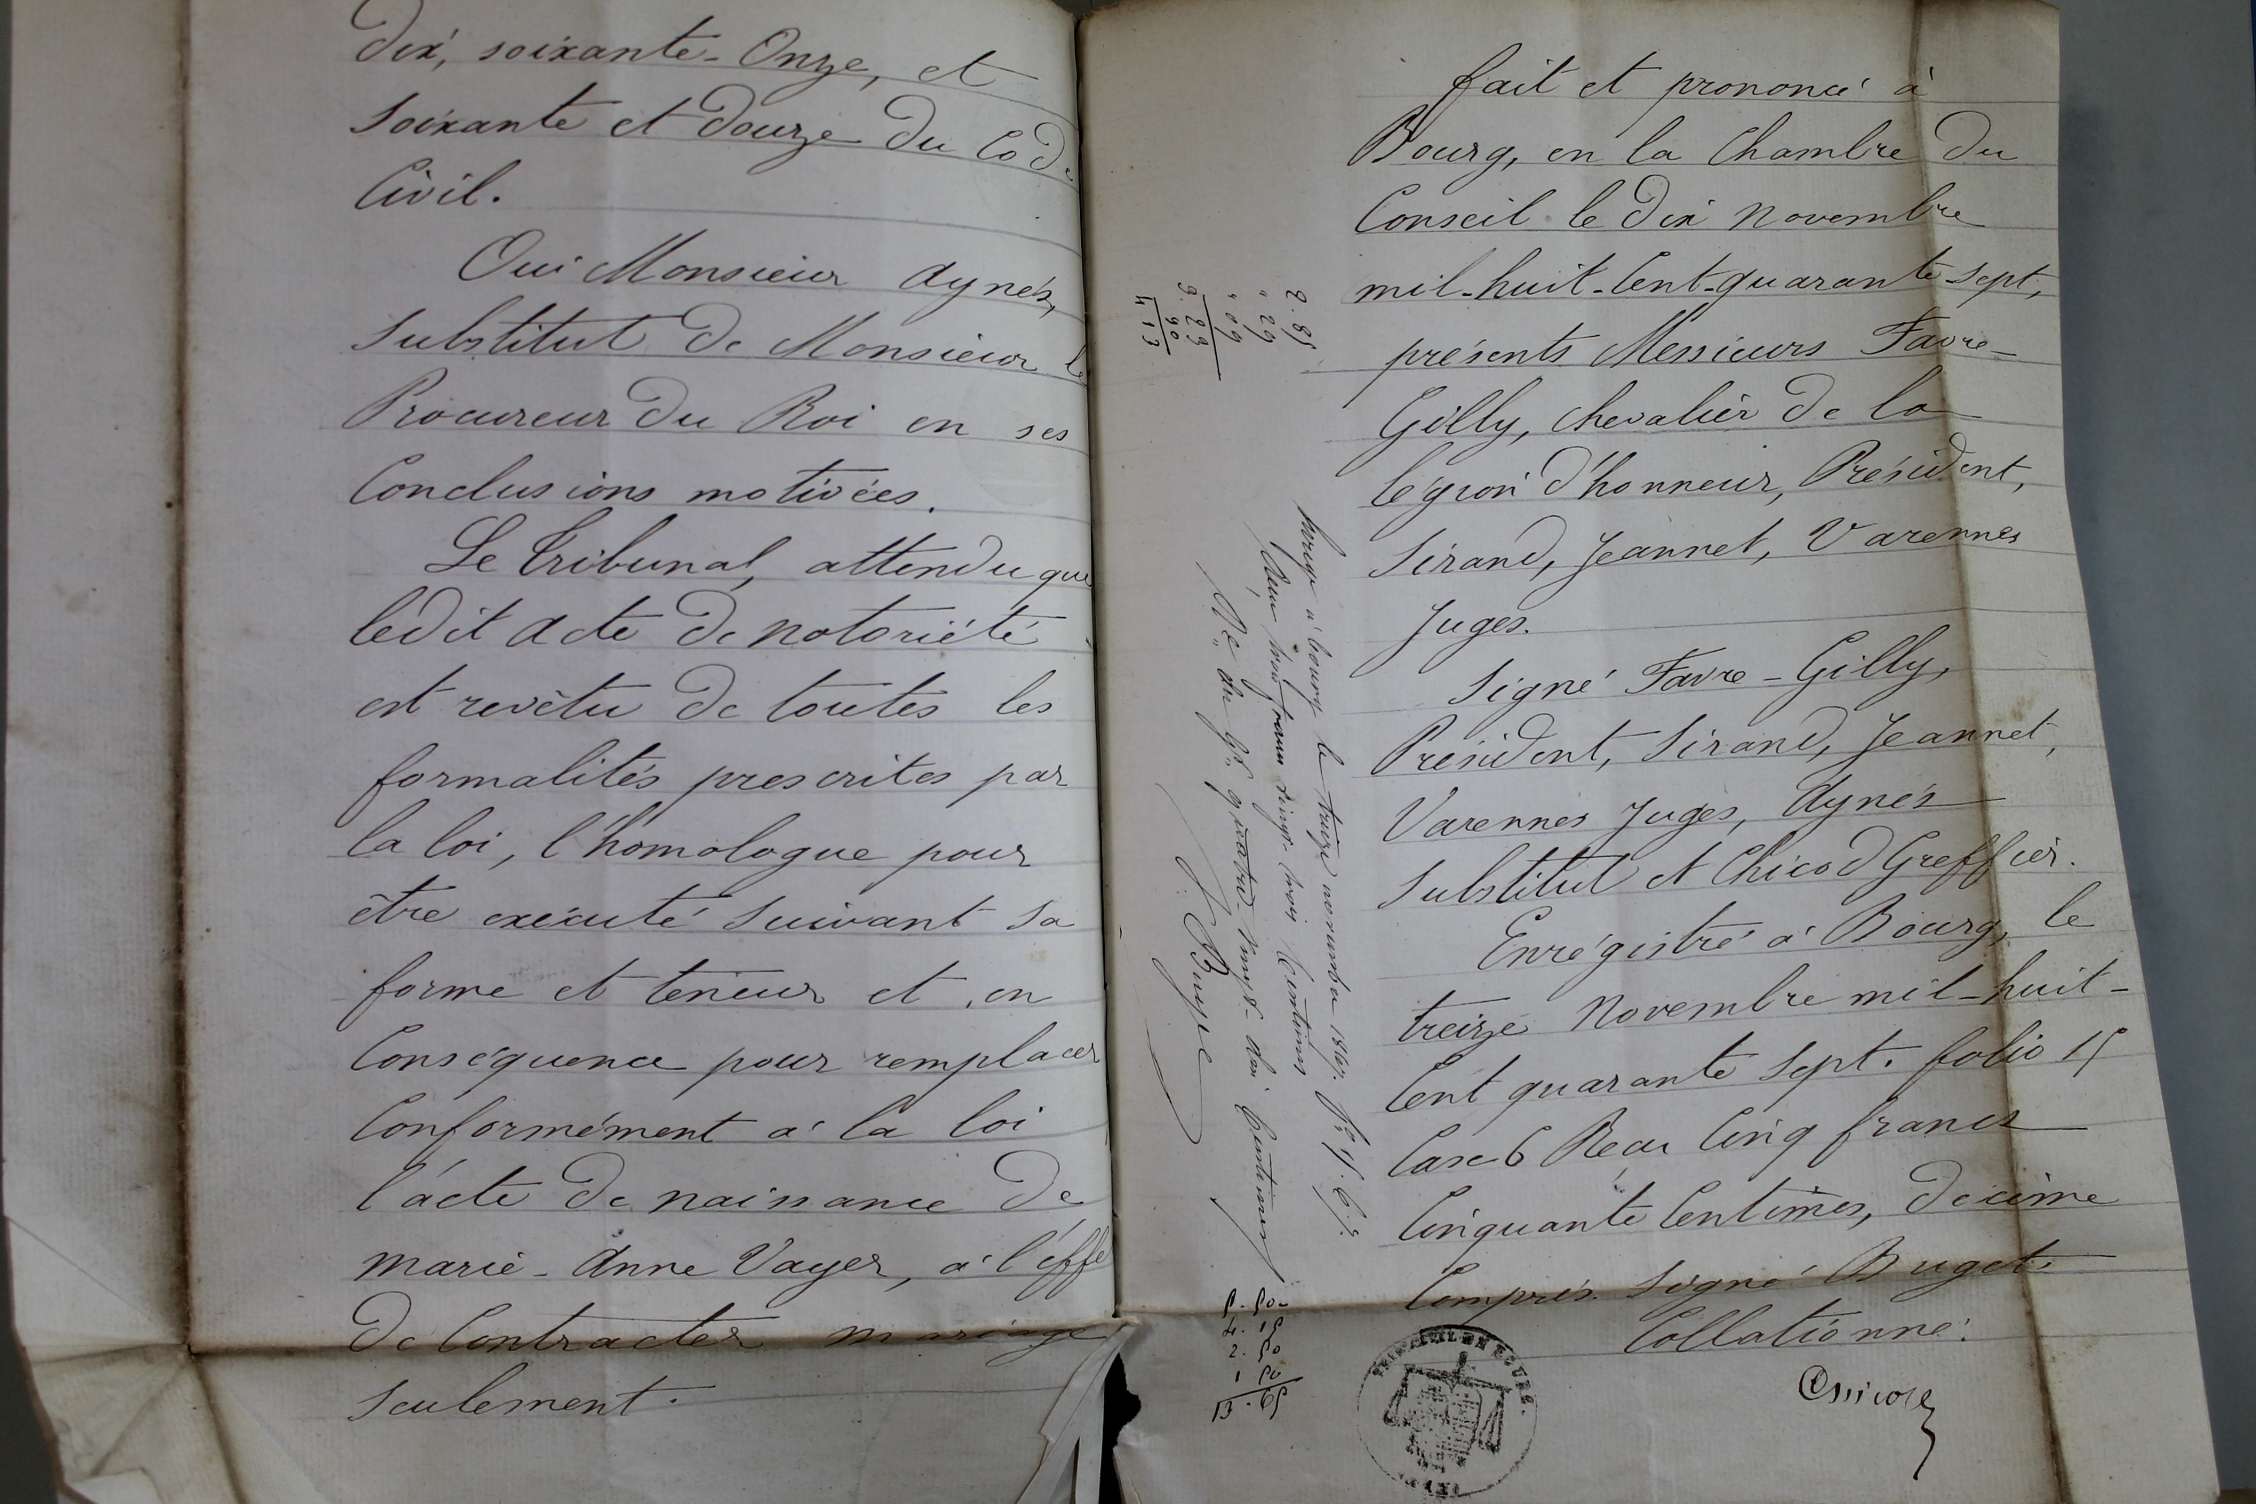 dix, soixante-Onze, et
soixante et douze du Code
Civil.
Oui Monsieur Aynès,
substitut de Monsieur le
Procureur du Roi en ses
Conclusions motivées.
Le Tribunal, attendu que
ledit acte de notoriété
est revêtu de toutes les
formalités prescrites par
la loi, l'homologue pour
être exécuté suivant sa
forme et teneur et en
Conséquence pour remplacer
Conformément à la loi
l'acte de naissance de
marie-Anne Vayer, à l'effe
de Contracter mariage
seulement.
fait et prononcé à
Bourg, en la Chambre du
Conseil le dix novembre
mil-huit-Cent-quarante-sept,
présents Messieurs Favre-
Gilly, chevalier de la
légion d'honneur, Président,
Sirand, Jeannet, Varennes
Juges.
Signé Favre-Gilly,
Président, Sirand, Jeannet,
Varennes Juges, Aynés
substitut et Chicod Greffier.
Enrégistré à Bourg, le
treize Novembre mil-huit-
Cent quarante sept. folio 15
Case 6 Reçu Cinq francs
Cinquante Centimes, décime
Compris. Signé Buget.
Collationné.
Chicod
2.85
" 29
" 09
3.23
90
4 13
à bourg le treize novembre 1847. fo 15. C. 6
Reçu trois francs vingt-trois Centimes
quatre-vingt-dix Centimes
5.50
4.15
2.50
1 50
13.65
TRIBUNAL CIVIL DE BOURG.
(AIN)